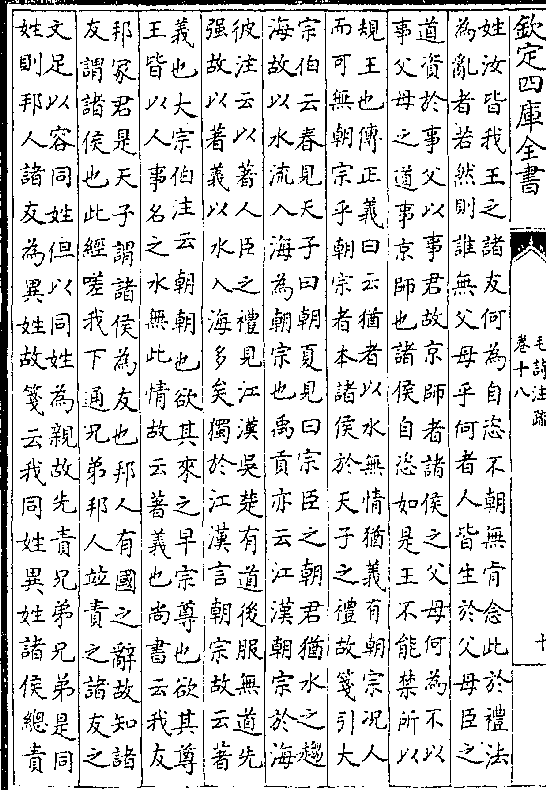 欽定四庫全書
毛詩注疏
卷十八
十
姓汝皆我王之諸友何為自恣不朝無肯念此於禮法
為亂者若然則誰無父母乎何者人皆生於父母臣之
道資於事父以事君故京師者諸侯之父母何為不以
事父母之道事京師也諸侯自恣如是王不能禁所以
規王也傳正義曰云猶者以水無情猶義有朝宗况人
而可無朝宗乎朝宗者本諸侯於天子之禮故箋引大
宗伯云春見天子曰朝夏見曰宗臣之朝君猶水之趨
海故以水流入海為朝宗也禹貢亦云江漢朝宗於海
彼注云以著人臣之禮見江漢吳楚有道後服無道先
强故以著義以水入海多矣獨於江漢言朝宗故云著
義也大宗伯注云朝朝也欲其來之早宗尊也欲其尊
王皆以人事名之水無此情故云著義也尚書云我友
邦冢君是天子謂諸侯為友也邦人有國之辭故知諸
友謂諸侯也此經嗟我下通兄弟邦人竝責之諸友之
文足以容同姓但以同姓為親故先責兄弟兄弟是同
姓則邦人諸友為異姓故箋云我同姓異姓諸侯總責